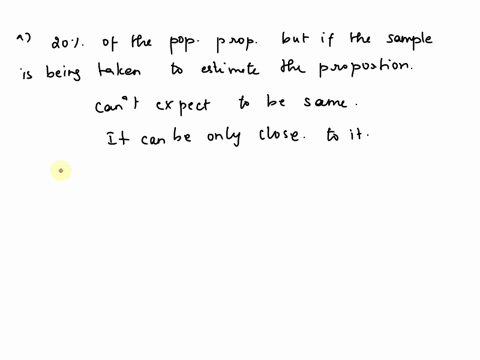 a) 20%. of the pop. prop. but if the sample
is being taken to estimate the proportion.
can't expect to be same.
It can be only close. to it.